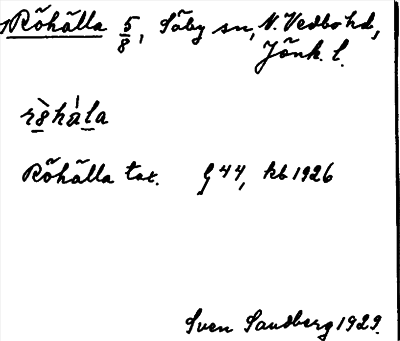 Röhälla 5/8, Säby sn, N. Vedbo hd,
Jönk. l.
Röhälla tax. G 44, kb 1926
Sven Sandberg 1929.